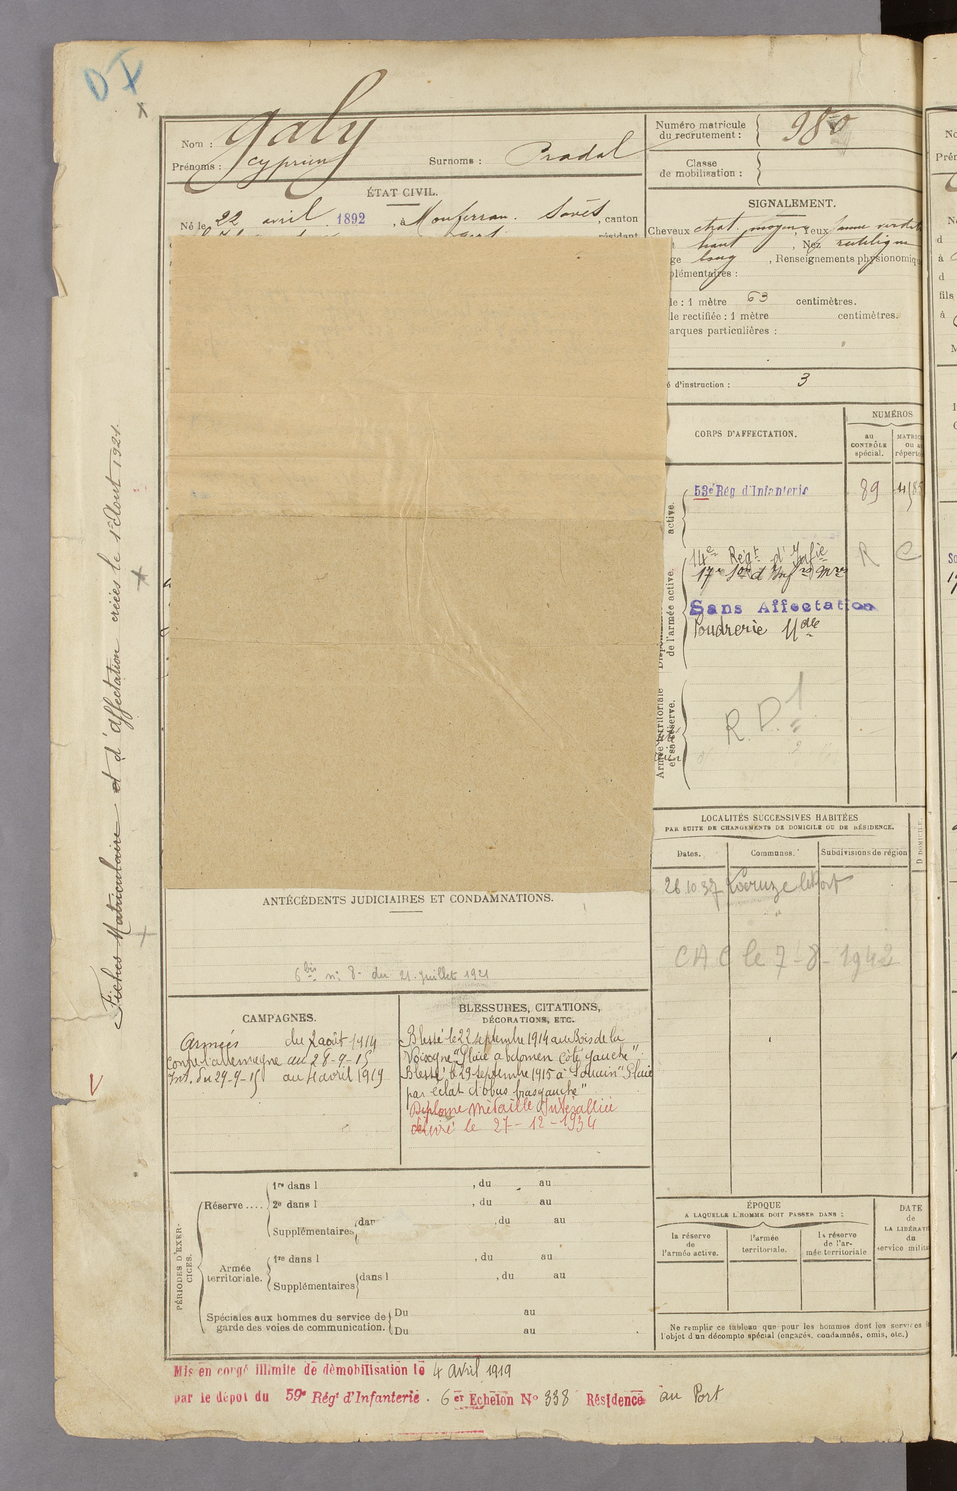 D I
Nom : Galy
Prénoms : Cyprien
Surnoms : Pradal
Numéro matricule
du recrutement : 980
Classe
de mobilisation :
ÉTAT CIVIL.
Né le 22 avril 1892, à Monferran. Savès, canton
résidant
SIGNALEMENT.
Cheveux chat. moyen, yeux
haut, Nez rectiligne
ge long, Renseignements physionomiq
plémentaires :
le : 1 mètre 63 centimètres.
le rectifiée : 1 mètre centimètres.
arques particulières :
é d'instruction : 3
CORPS D'AFFECTATION.
NUMÉROS
au
CONTRÔLE
spécial.
MATRIC
OU A
répertoi
active.
53e Rég. d'Infanterie
89
de l'armée active.
14e Regt d'Infie
R
C
Sans Affectation
Poudrerie
Armée territoriale
et sa réserve.
R. D. 1
LOCALITÉS SUCCESSIVES HABITÉES
PAR SUITE DE CHANGEMENTS DE DOMICILE OU DE RÉSIDENCE.
Dates.
Communes.
Subdivisions de région
D DOMICILE.
26 10 37
CAC le 7-8-1942
Fiches Matriculaire et d'affectation créées le 1er Août 1921.
ANTÉCÉDENTS JUDICIAIRES ET CONDAMNATIONS.
6 bis n: 8 du 21 Juillet 1921
CAMPAGNES.
Armées du 2 août 1914
contre l'allemagne au 28-9-15
Int. du 29-9-15 au 4 avril 1919
BLESSURES, CITATIONS,
DÉCORATIONS, ETC.
Blessé le 22 septembre 1914 au Bois de la
"Plaie abdomen côté gauche".
Blessé le 29 septembre 1915 à Souain "Plaie
par éclat d'obus bras gauche"
Diplome Médaille Interalliée
délivré le 27-12-1934
PÉRIODES D'EXER-
CICES.
Réserve ....
1re dans l , du au
2e dans l , du au
Supplémentaires dan , du au
Armée
territoriale.
1re dans l , du au
Supplémentaires dans l , du au
Spéciales aux hommes du service de
garde des voies de communication.
Du au
Du au
ÉPOQUE
A LAQUELLE L'HOMME DOIT PASSER DANS :
la réserve
de
l'armée active.
l'armée
territoriale.
la réserve
de l'ar-
mée territoriale
DATE
de
LA LIBÉRAT
du
service milita
Ne remplir ce tableau que pour les hommes dont les services
l'objet d'un décompte spécial (engagés, condamnés, omis, etc.)
Mis en congé illimité de démobilisation le 4 avril 1919
par le dépôt du 59e Régt d'Infanterie. 6er Echelon No 338 Résidence au Port